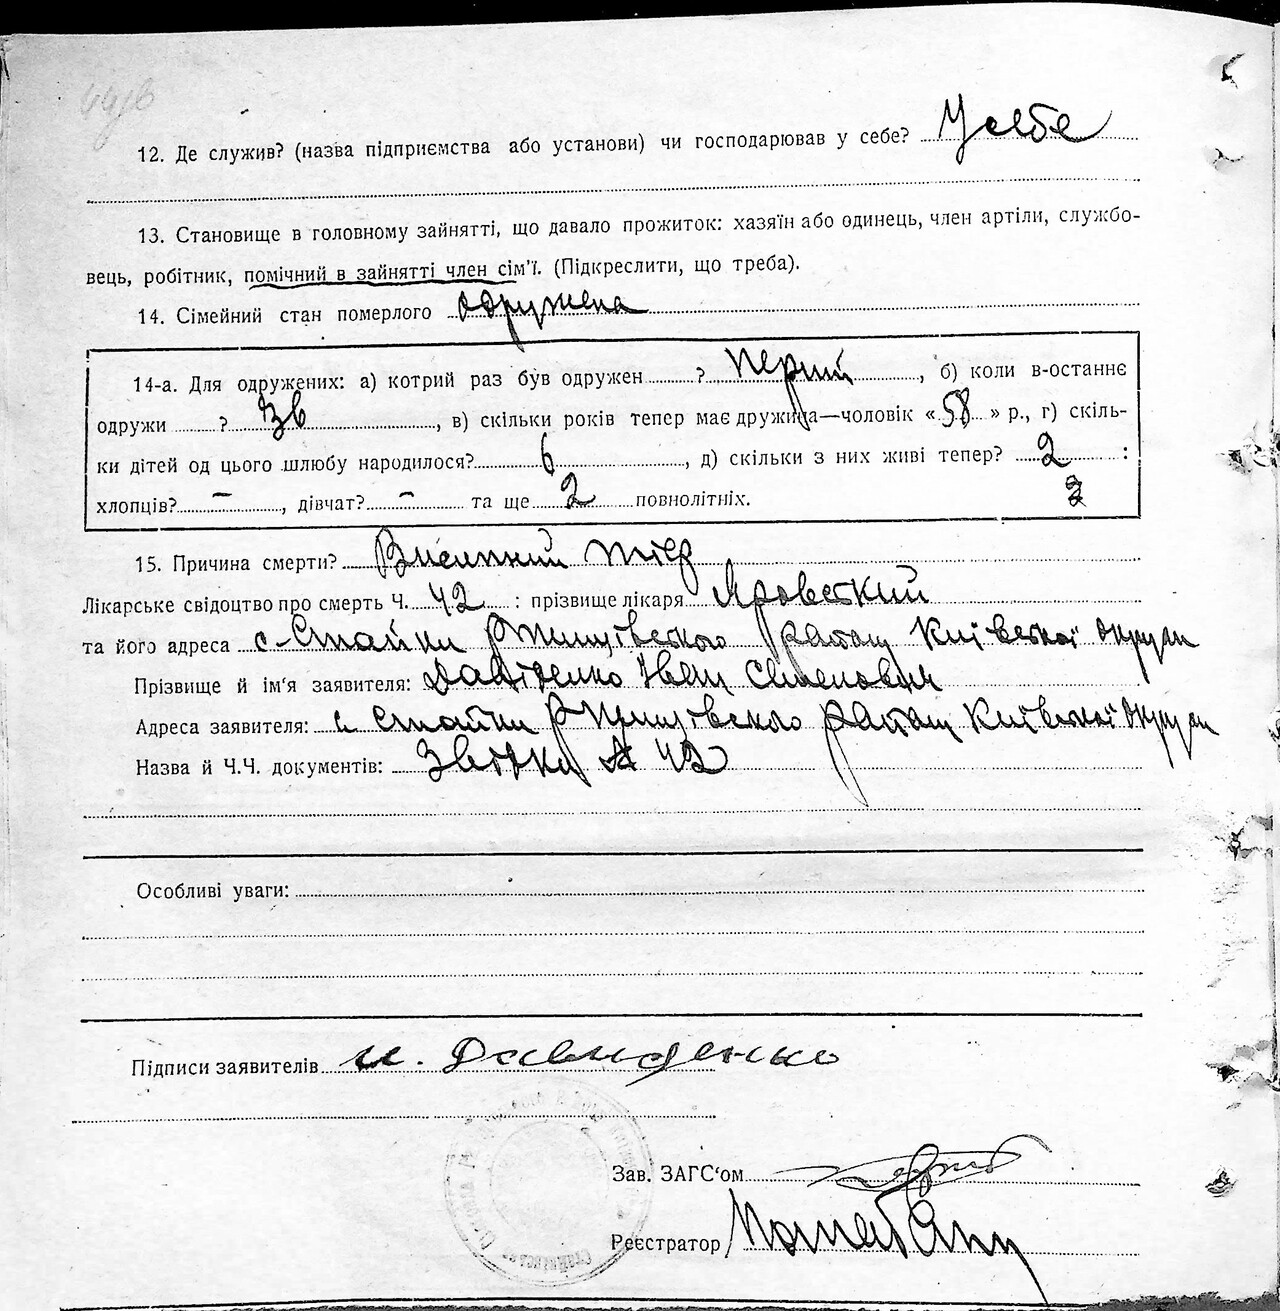 12. Де служив? (назва підприємства або установи) чи господарював у себе? У себе
13. Становище в головному зайнятті, що давало прожиток: хазяїн або одинець, член артіли, службо-
вець, робітник, помічний в зайнятті член сім'ї. (Підкреслити, що треба).
14. Сімейний стан померлого одружена
14-а. Для одружених: а) котрий раз був одружен ? перший, б) коли в-останнє
одружи ? , в) скільки років тепер має дружина—чоловік « 58 » р., г) скіль-
ки дітей од цього шлюбу народилося? 6 , д) скільки з них живі тепер? 2 :
хлопців? – , дівчат? – та ще 2 повнолітніх. 2
15. Причина смерти? Висипний тиф
Лікарське свідоцтво про смерть Ч. 42 : прізвище лікаря Яровський
та його адреса с-Стайки Ржищівського району Київської округи
Прізвище й ім'я заявителя: Давіденко Іван Семенович
Адреса заявителя: с Стайки Ржищівського району Київської округи
Назва й Ч.Ч. документів: 42
Особливі уваги:
Підписи заявителів и. Давиденко
Зав. ЗАГС'ом
Реєстратор